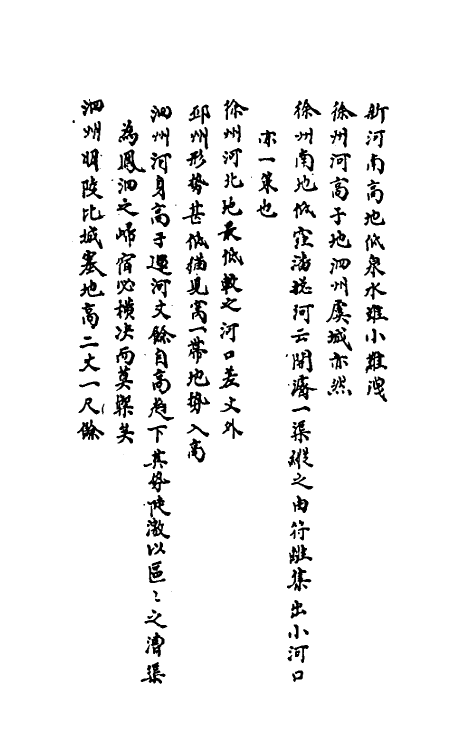 新河南高地低泉水雖小難洩
徐州河高于地泗州虞城亦然
徐州南地低窪潘總河云開濬一渠縱之由符離集出小河口
亦一策也
徐州河北地最低較之河口差丈外
邳州形勢甚低猫見窩一帶地勢入高
泗州河身高于運河丈餘自高趋下其勢陡激以區〻之漕渠
為鳳泗之歸宿必橫决而莫禦矣
泗州明陵比城塞地高二丈一尺餘